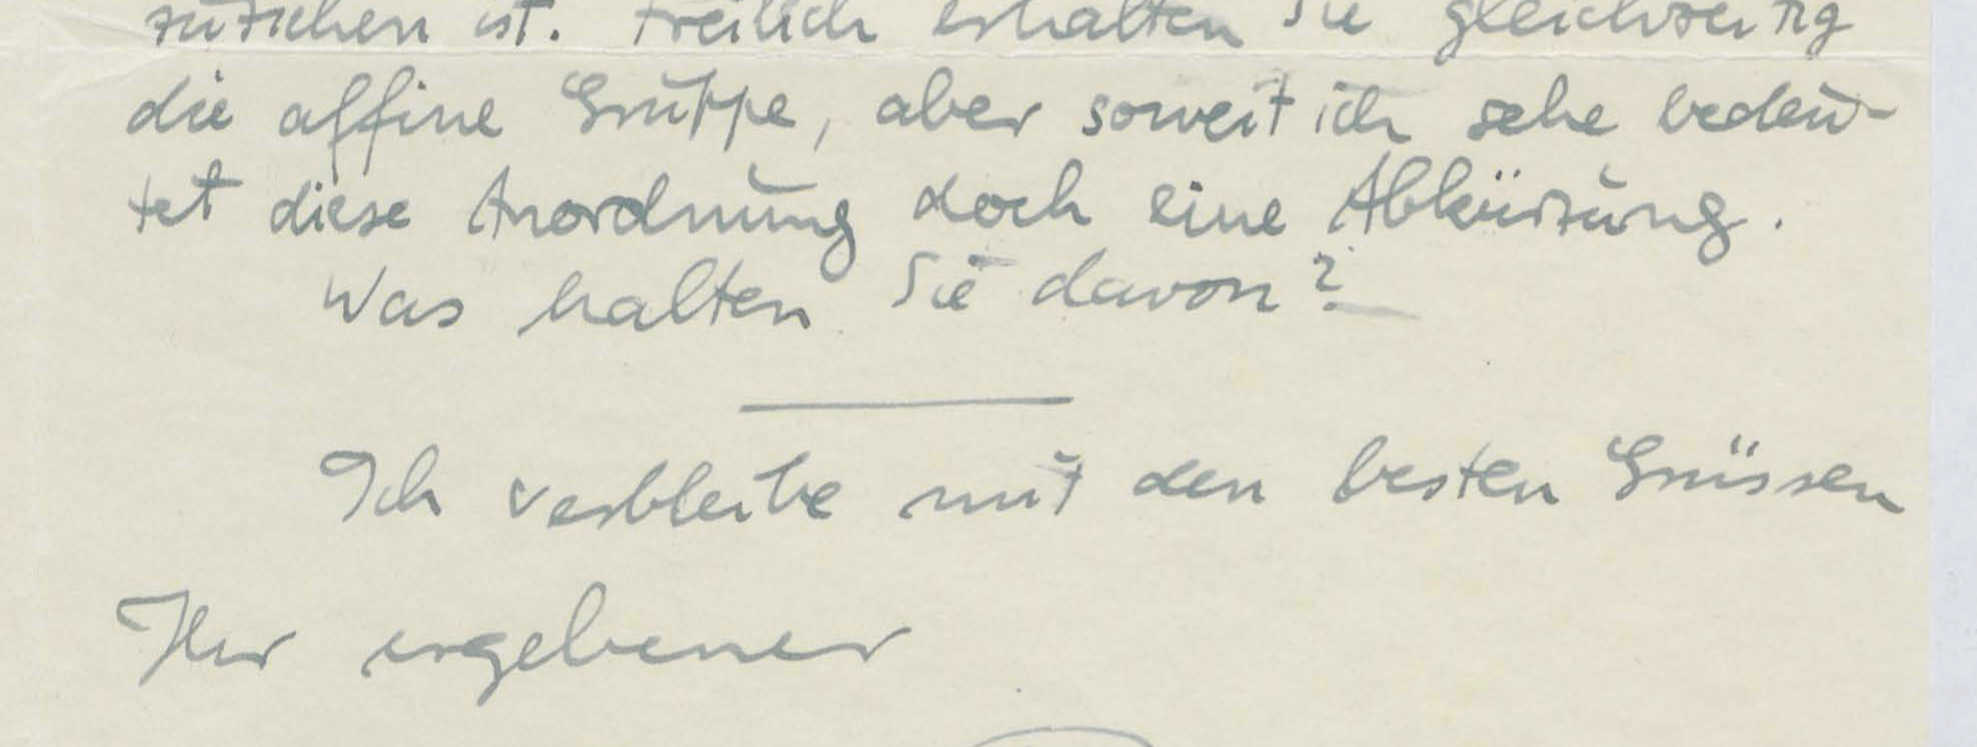 zuziehen ist. Freilich erhalten Sie gleichzeitig
die affine Gruppe, aber soweit ich sehe bedeu-
tet diese Anordnung doch eine Abkürzung.
Was halten Sie davon?
Ich verbleibe mit den besten Grüssen
Ihr ergebener